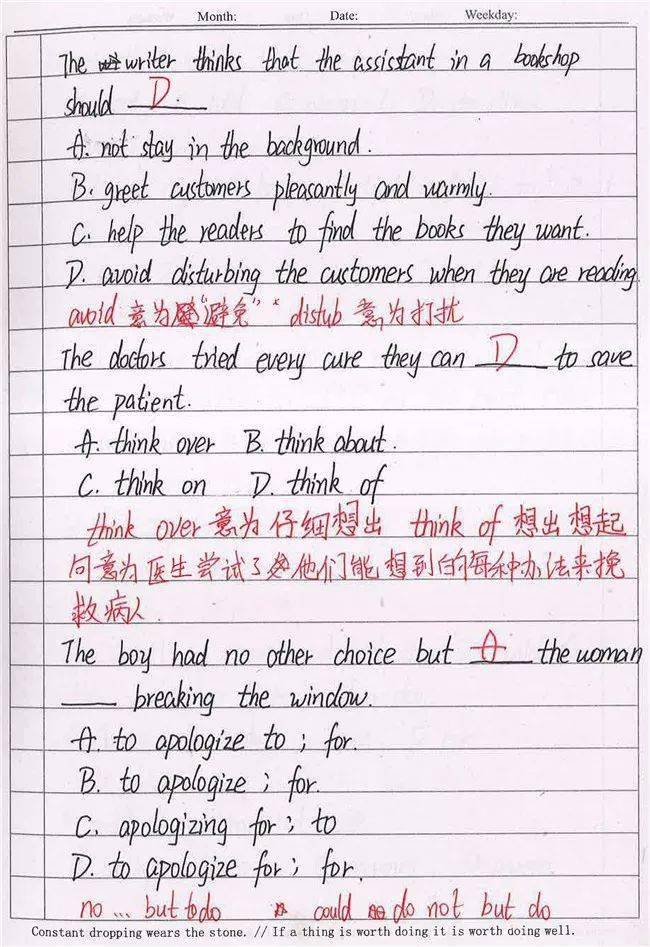 Month: Date: Weekday:
The writer thinks that the assistant in a bookshop
should D
A. not stay in the background.
B. greet customers pleasantly and warmly.
C. help the readers to find the books they want.
D. avoid disturbing the customers when they are reading
avoid 意为"避免" distub 意为打扰
The doctors tried every cure they can D to save
the patient.
A. think over B. think about.
C. think on D. think of
think over 意为仔细想出 think of 想出想起
句意为医生尝试了他们能想到的每种办法来挽
救病人.
The boy had no other choice but A the woman
breaking the window.
A. to apologize to ; for.
B. to apologize ; for.
C. apologizing for ; to
D. to apologize for ; for.
no ... but to do could do not but do
Constant dropping wears the stone. // If a thing is worth doing it is worth doing well.